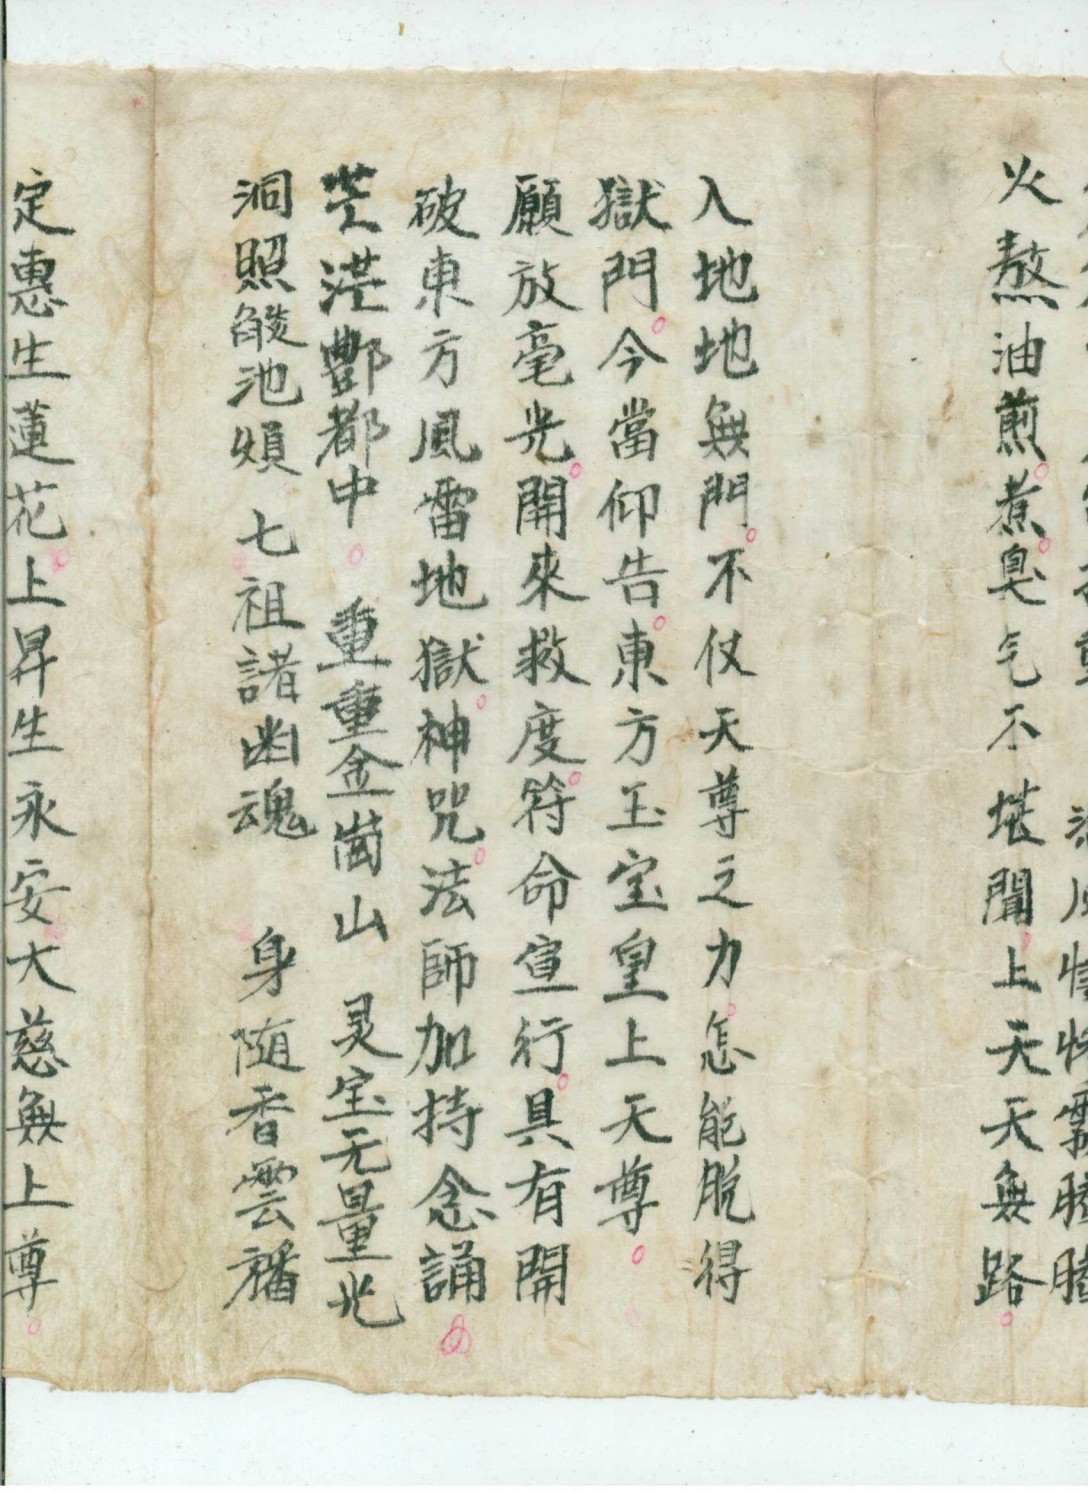 重 流風慞慞霧朦朦
火熬油煎煮臭气不堪聞上天天無路
入地地無門不仗天尊之力怎能脱得
獄門今當仰告東方玉宝皇上天尊
願放毫光開來救度符命宣行具有開
破東方風雷地獄神咒法師加持念誦
茫茫酆都中 重重金崗山 灵宝无量光
洞照燄池煩 七祖諸幽魂 身随香雲旛
定惠生蓮花上昇生永安大慈無上尊